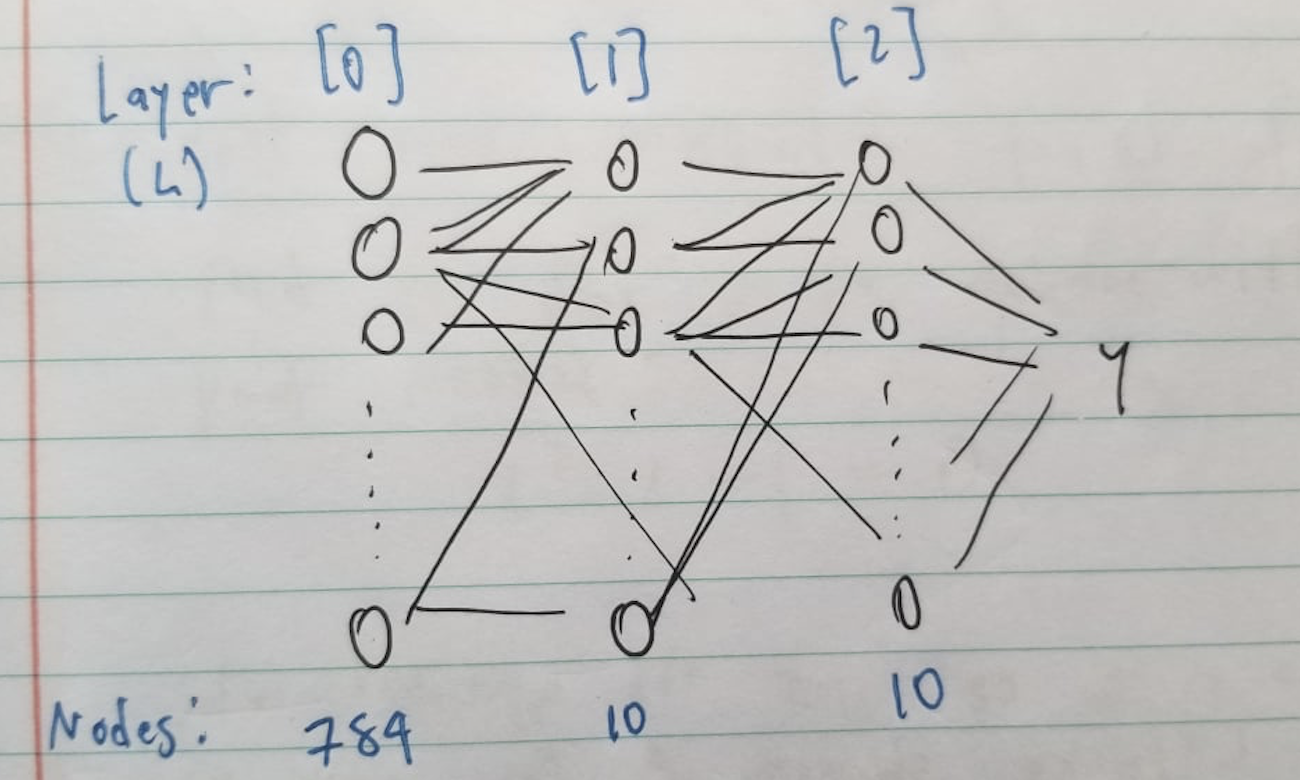 Layer: [0] [1] [2]
(L)
y
Nodes: 784 10 10